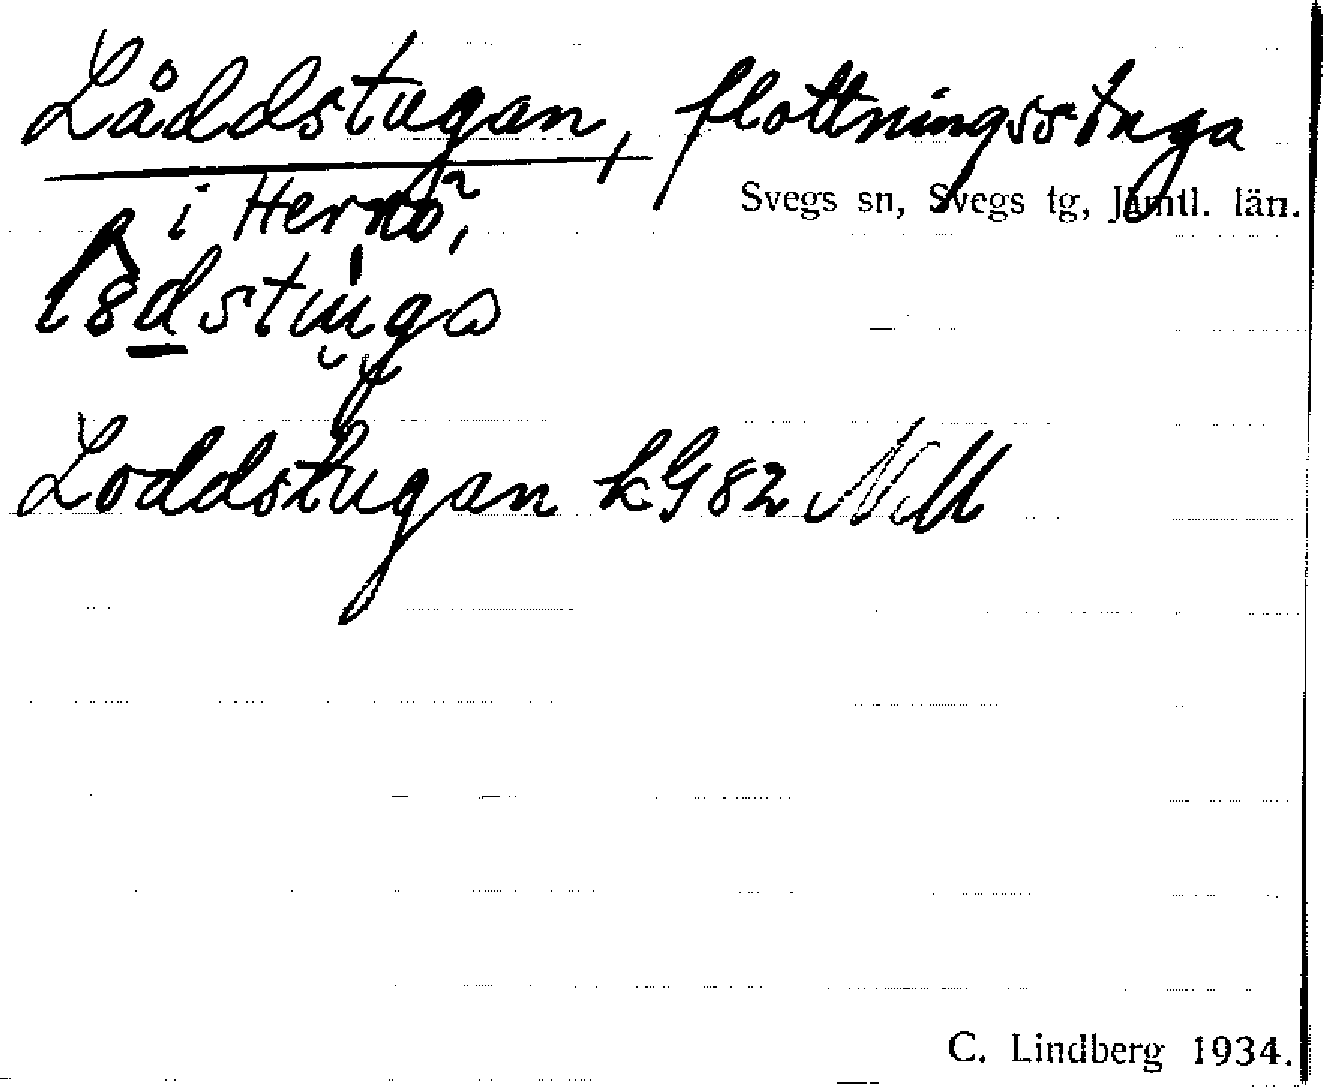 Låddstugan, flottningsstuga
Svegs sn, Svegs tg, Jämtl. län.
i Hernö,
Loddstugan kG 82 NM
C. Lindberg 1934.